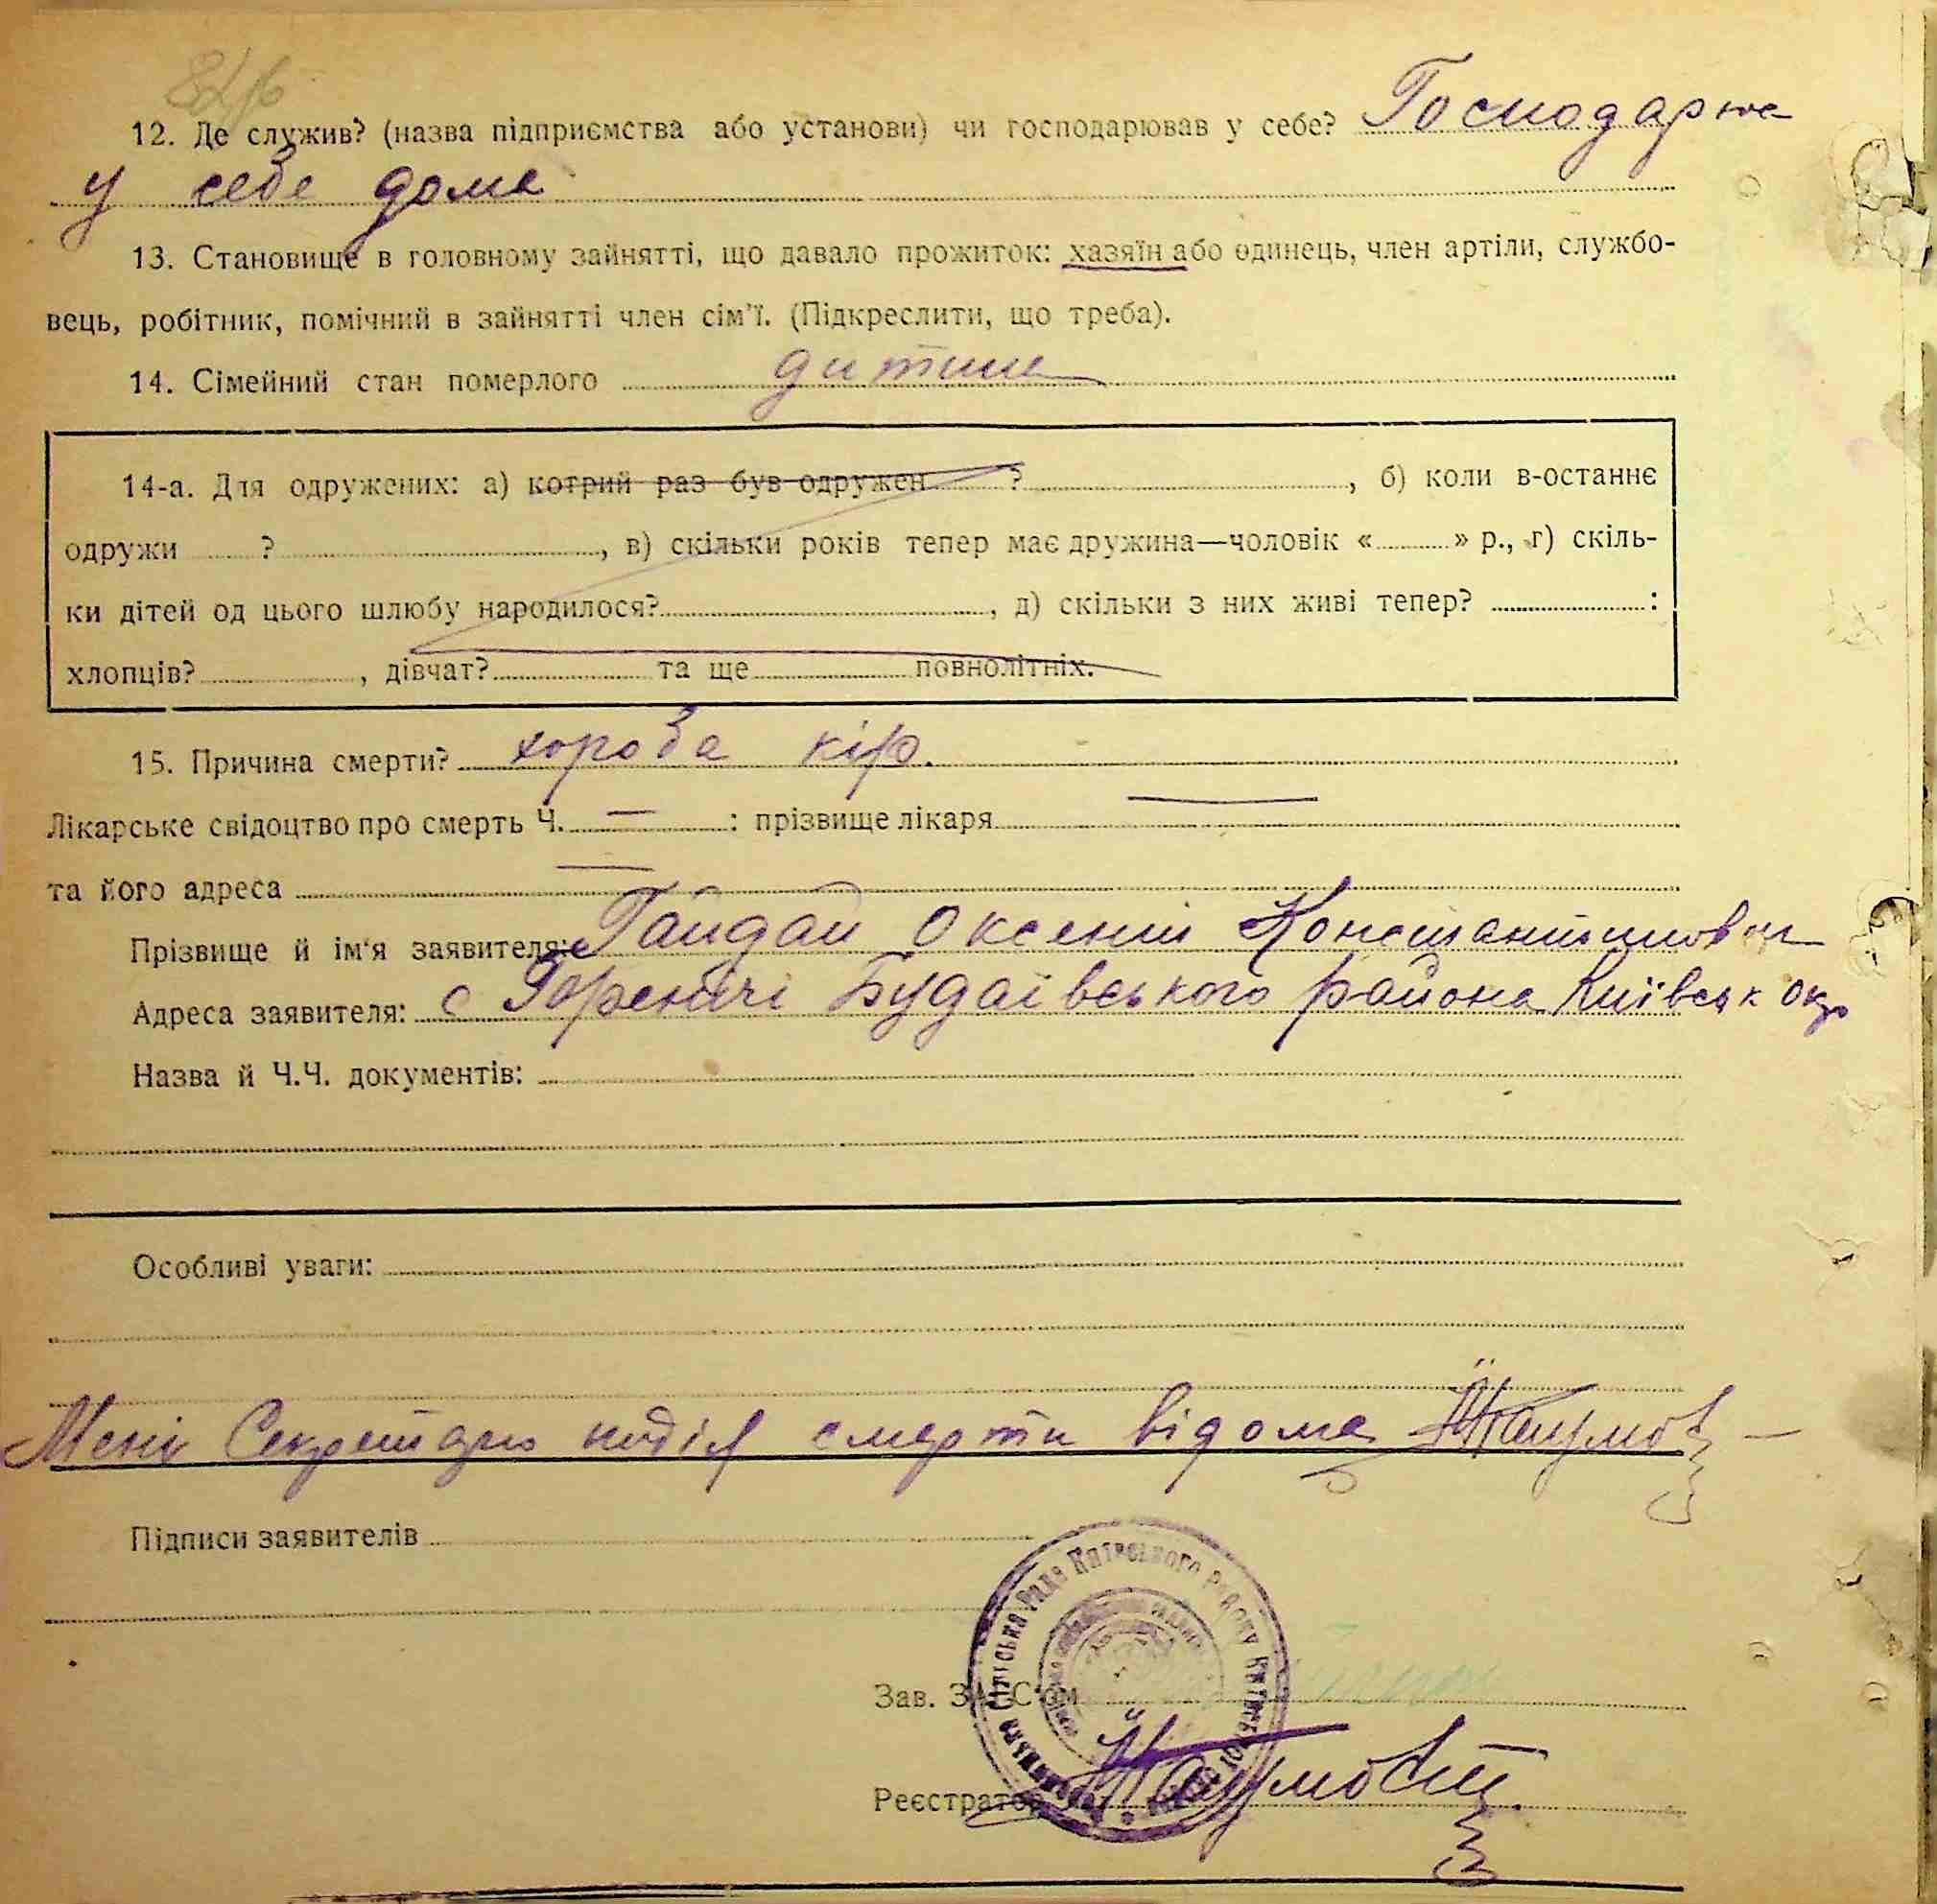 12. Де служив? (назва підприємства або установи) чи господарював у себе? Господарює
у себе дома
13. Становище в головному зайнятті, що давало прожиток: хазяїн або одинець, член артіли, службо-
вець, робітник, помічний в зайнятті член сім'ї. (Підкреслити, що треба).
14. Сімейний стан померлого дитина
14-а. Для одружених: а) котрий раз був одружен ? , б) коли в-останнє
одружи ? , в) скільки років тепер має дружина—чоловік « » р., г) скіль-
ки дітей од цього шлюбу народилося? , д) скільки з них живі тепер? :
хлопців? , дівчат? та ще повнолітніх.
15. Причина смерти? хороба кір.
Лікарське свідоцтво про смерть Ч. — : прізвище лікаря —
та його адреса —
Прізвище й ім'я заявителя: Гайдай Оксентій Константинович
Адреса заявителя: с Гореничі Будаївського района Київськ окр
Назва й Ч.Ч. документів:
Особливі уваги:
Мені Секретарю подія смерти відома
Підписи заявителів
Сільська Рада Київського району
Зав. ЗАГС'ом
Реєстратор